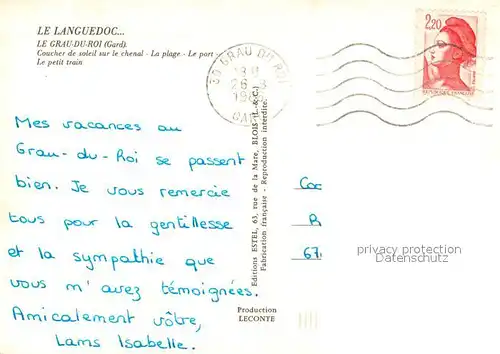 LE LANGUEDOC...
LE GRAU-DU-ROI (Gard).
Coucher de soleil sur le chenal - La plage - Le port -
Le petit train
2,20
REPUBLIQUE FRANÇAISE
30 GRAU DU ROI
GARD
Mes vacances au
Grau-du-Roi se passent
bien. Je vous remercie
tous pour la gentillesse
et la sympathie que
vous m'avez témoignées.
Amicalement vôtre,
Lams Isabelle.
Editions ESTEL, 63, rue de la Mare, BLOIS (L.-&-C.)
Fabrication française - Reproduction interdite.
Production
LECONTE
Coc
R
67
privacy protection
Datenschutz